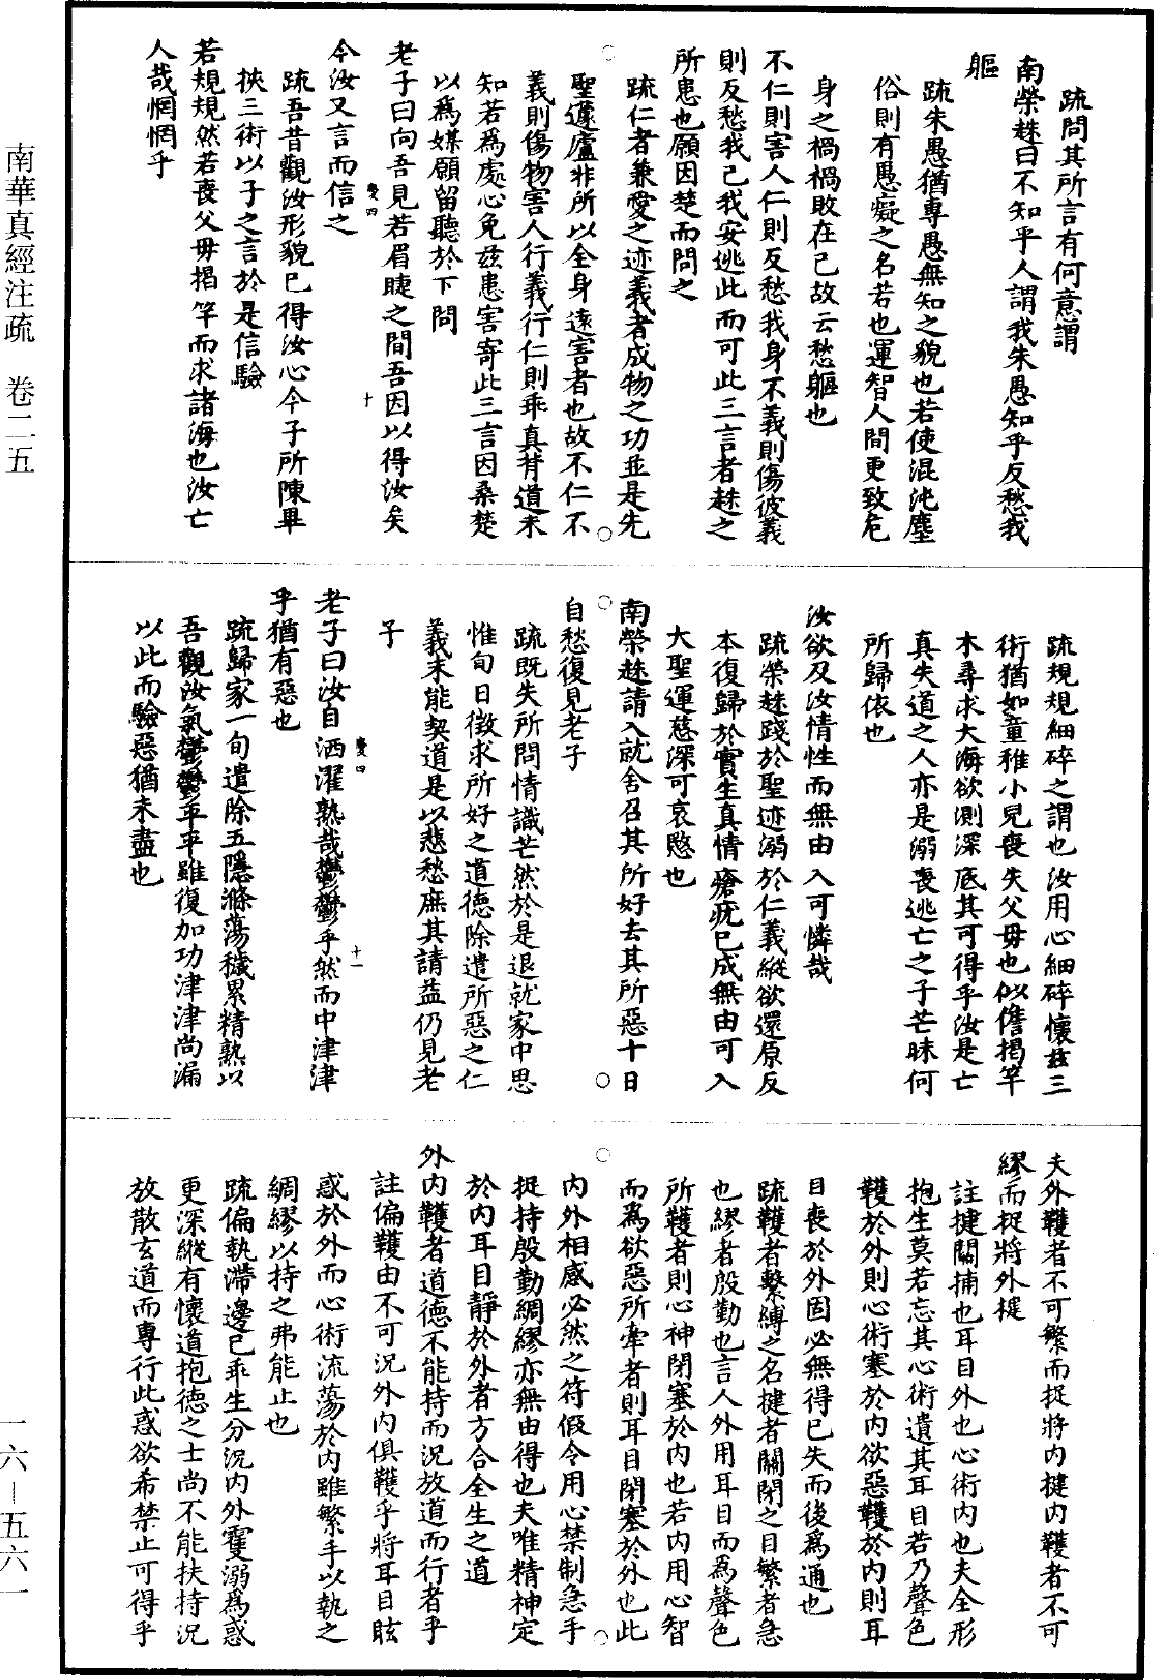 南華真經注疏　卷二五
一六—五六一
疏問其所言有何意謂
南榮趎曰不知乎人謂我朱愚知乎反愁我
軀
疏朱愚猶專愚無知之貌也若使混沌塵
俗則有愚癡之名若也運智人間更致危
身之禍禍敗在己故云愁軀也
不仁則害人仁則反愁我身不義則傷彼義
則反愁我己我安逃此而可此三言者趎之
所患也願因楚而問之
疏仁者兼愛之迹義者成物之功並是先
聖蘧廬非所以全身遠害者也故不仁不
義則傷物害人行義行仁則乖真背道未
知若為處心免茲患害寄此三言因桑楚
以為媒願留聽於下問
老子曰向吾見若眉睫之間吾因以得汝矣
今汝又言而信之
疏吾昔觀汝形貌已得汝心今子所陳畢
挾三術以子之言於是信驗
若規規然若喪父母揭竿而求諸海也汝亡
人哉惘惘乎
疏規規細碎之謂也汝用心細碎懷茲三
術猶如童稚小兒喪失父母也似儋揭竿
木尋求大海欲測深底其可得乎汝是亡
真失道之人亦是溺喪逃亡之子芒昧何
所歸依也
汝欲反汝情性而無由入可憐哉
疏榮趎踐於聖迹溺於仁義縱欲還原反
本復歸於實生真情瘡疣已成無由可入
大聖運慈深可哀愍也
南榮趎請入就舍召其所好去其所惡十日
自愁復見老子
疏既失所問情識芒然於是退就家中思
惟旬日徵求所好之道德除遣所惡之仁
義未能契道是以悲愁庶其請益仍見老
子
老子曰汝自洒濯熟哉鬱鬱乎然而中津津
乎猶有惡也
疏歸家一旬遣除五隱滌蕩穢累精熟以
吾觀汝氣鬱鬱乎平雖復加功津津尚漏
以此而驗惡猶未盡也
夫外韄者不可繁而捉將內揵內韄者不可
繆而捉將外揵
註揵關捕也耳目外也心術內也夫全形
抱生莫若忘其心術遺其耳目若乃聲色
韄於外則心術塞於內欲惡韄於內則耳
目喪於外固必無得已失而後為通也
疏韄者繫縛之名揵者關閉之目繁者急
也繆者殷勤也言人外用耳目而為聲色
所韄者則心神閉塞於內也若內用心智
而為欲惡所牽者則耳目閉塞於外也此
內外相感必然之符假令用心禁制急手
捉持殷勤綢繆亦無由得也夫唯精神定
於內耳目靜於外者方合全生之道
外內韄者道德不能持而況放道而行者乎
註偏韄由不可況外內俱韄乎將耳目眩
惑於外而心術流蕩於內雖繁手以執之
綢繆以持之弗能止也
疏偏執滯邊已乖生分況內外䨥溺為惑
更深縱有懷道抱德之士尚不能扶持況
放散玄道而專行此惑欲希禁止可得乎